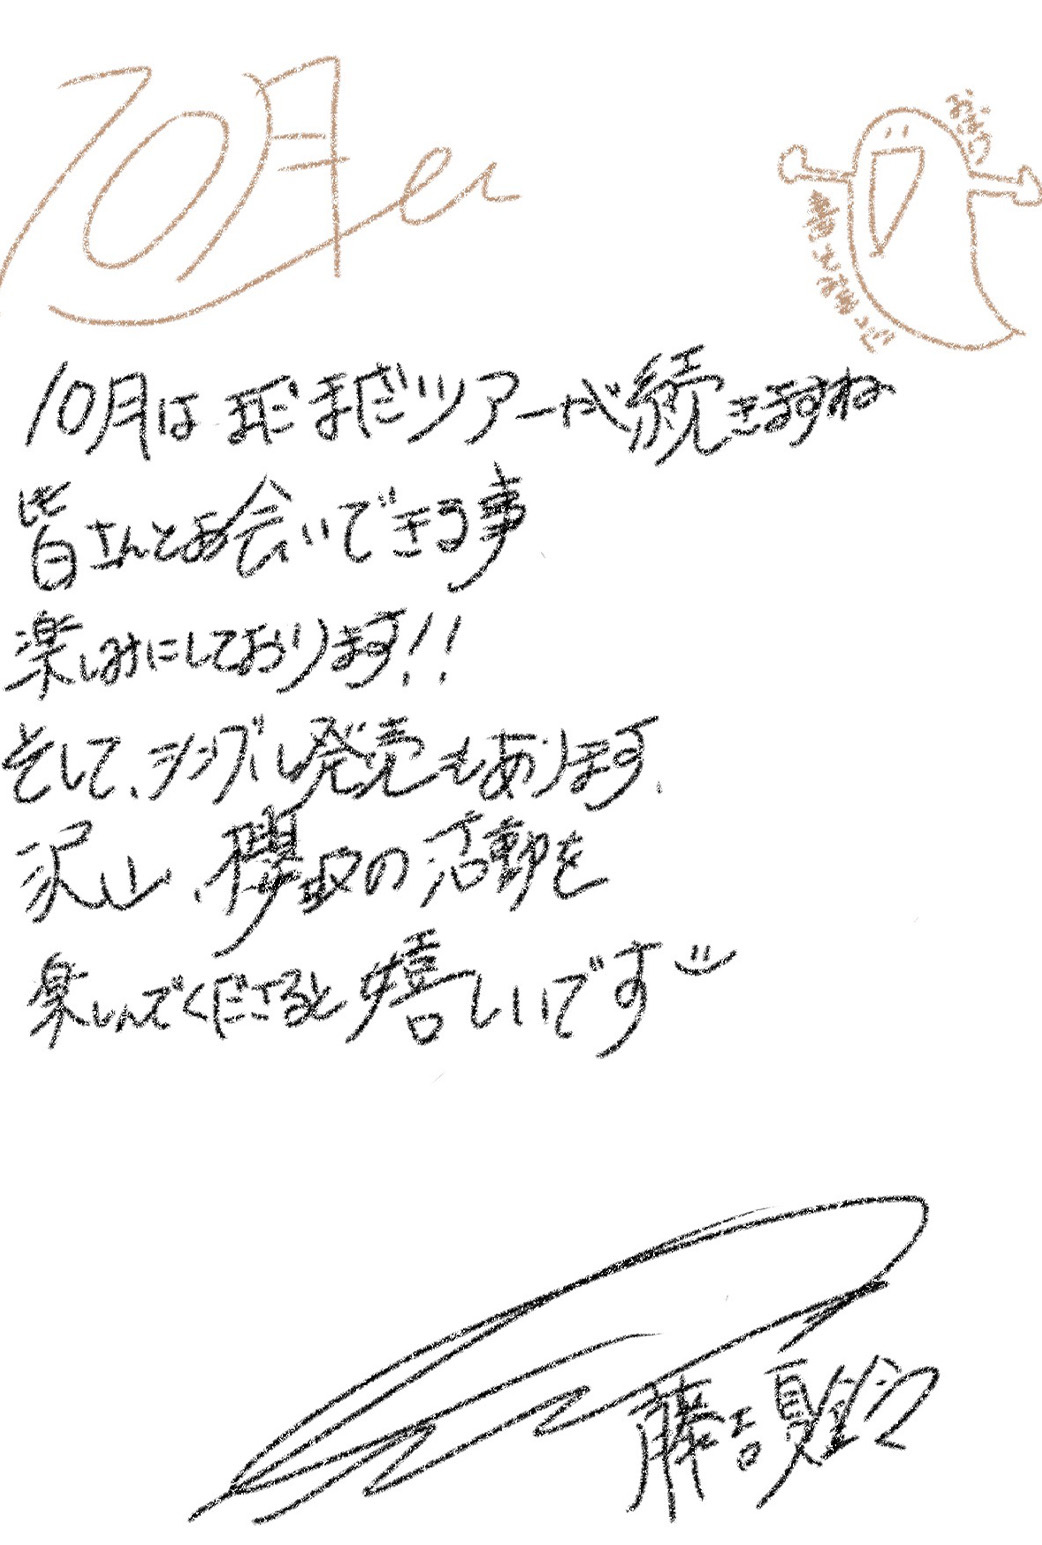 10月
10月はまだまだツアーが続きますね
皆さんとお会いできる事
楽しみにしております!!
そして、シングル発売もあります、
沢山、櫻坂の活動を
楽しんでくださると嬉しいです
藤吉夏鈴